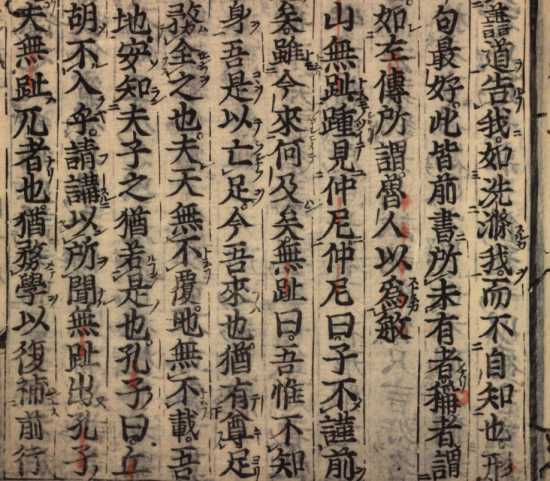 善道告我。如洗滌我。而不自知也。形
句最好。此皆前書所未有者。稱者謂
如左傳所謂。魯人以為敏
山無趾踵見仲尼仲尼曰子不謹前
矣。雖今來何及矣。無趾曰。吾惟不知
身吾是以亡足。今吾來也。猶有尊足
務全之也。夫天無不覆。地無不載。吾
地安知夫子之猶若是也。孔子曰。丘
胡不入乎。請講以所聞無趾出孔子
夫無趾兀者也猶務學以復補前行